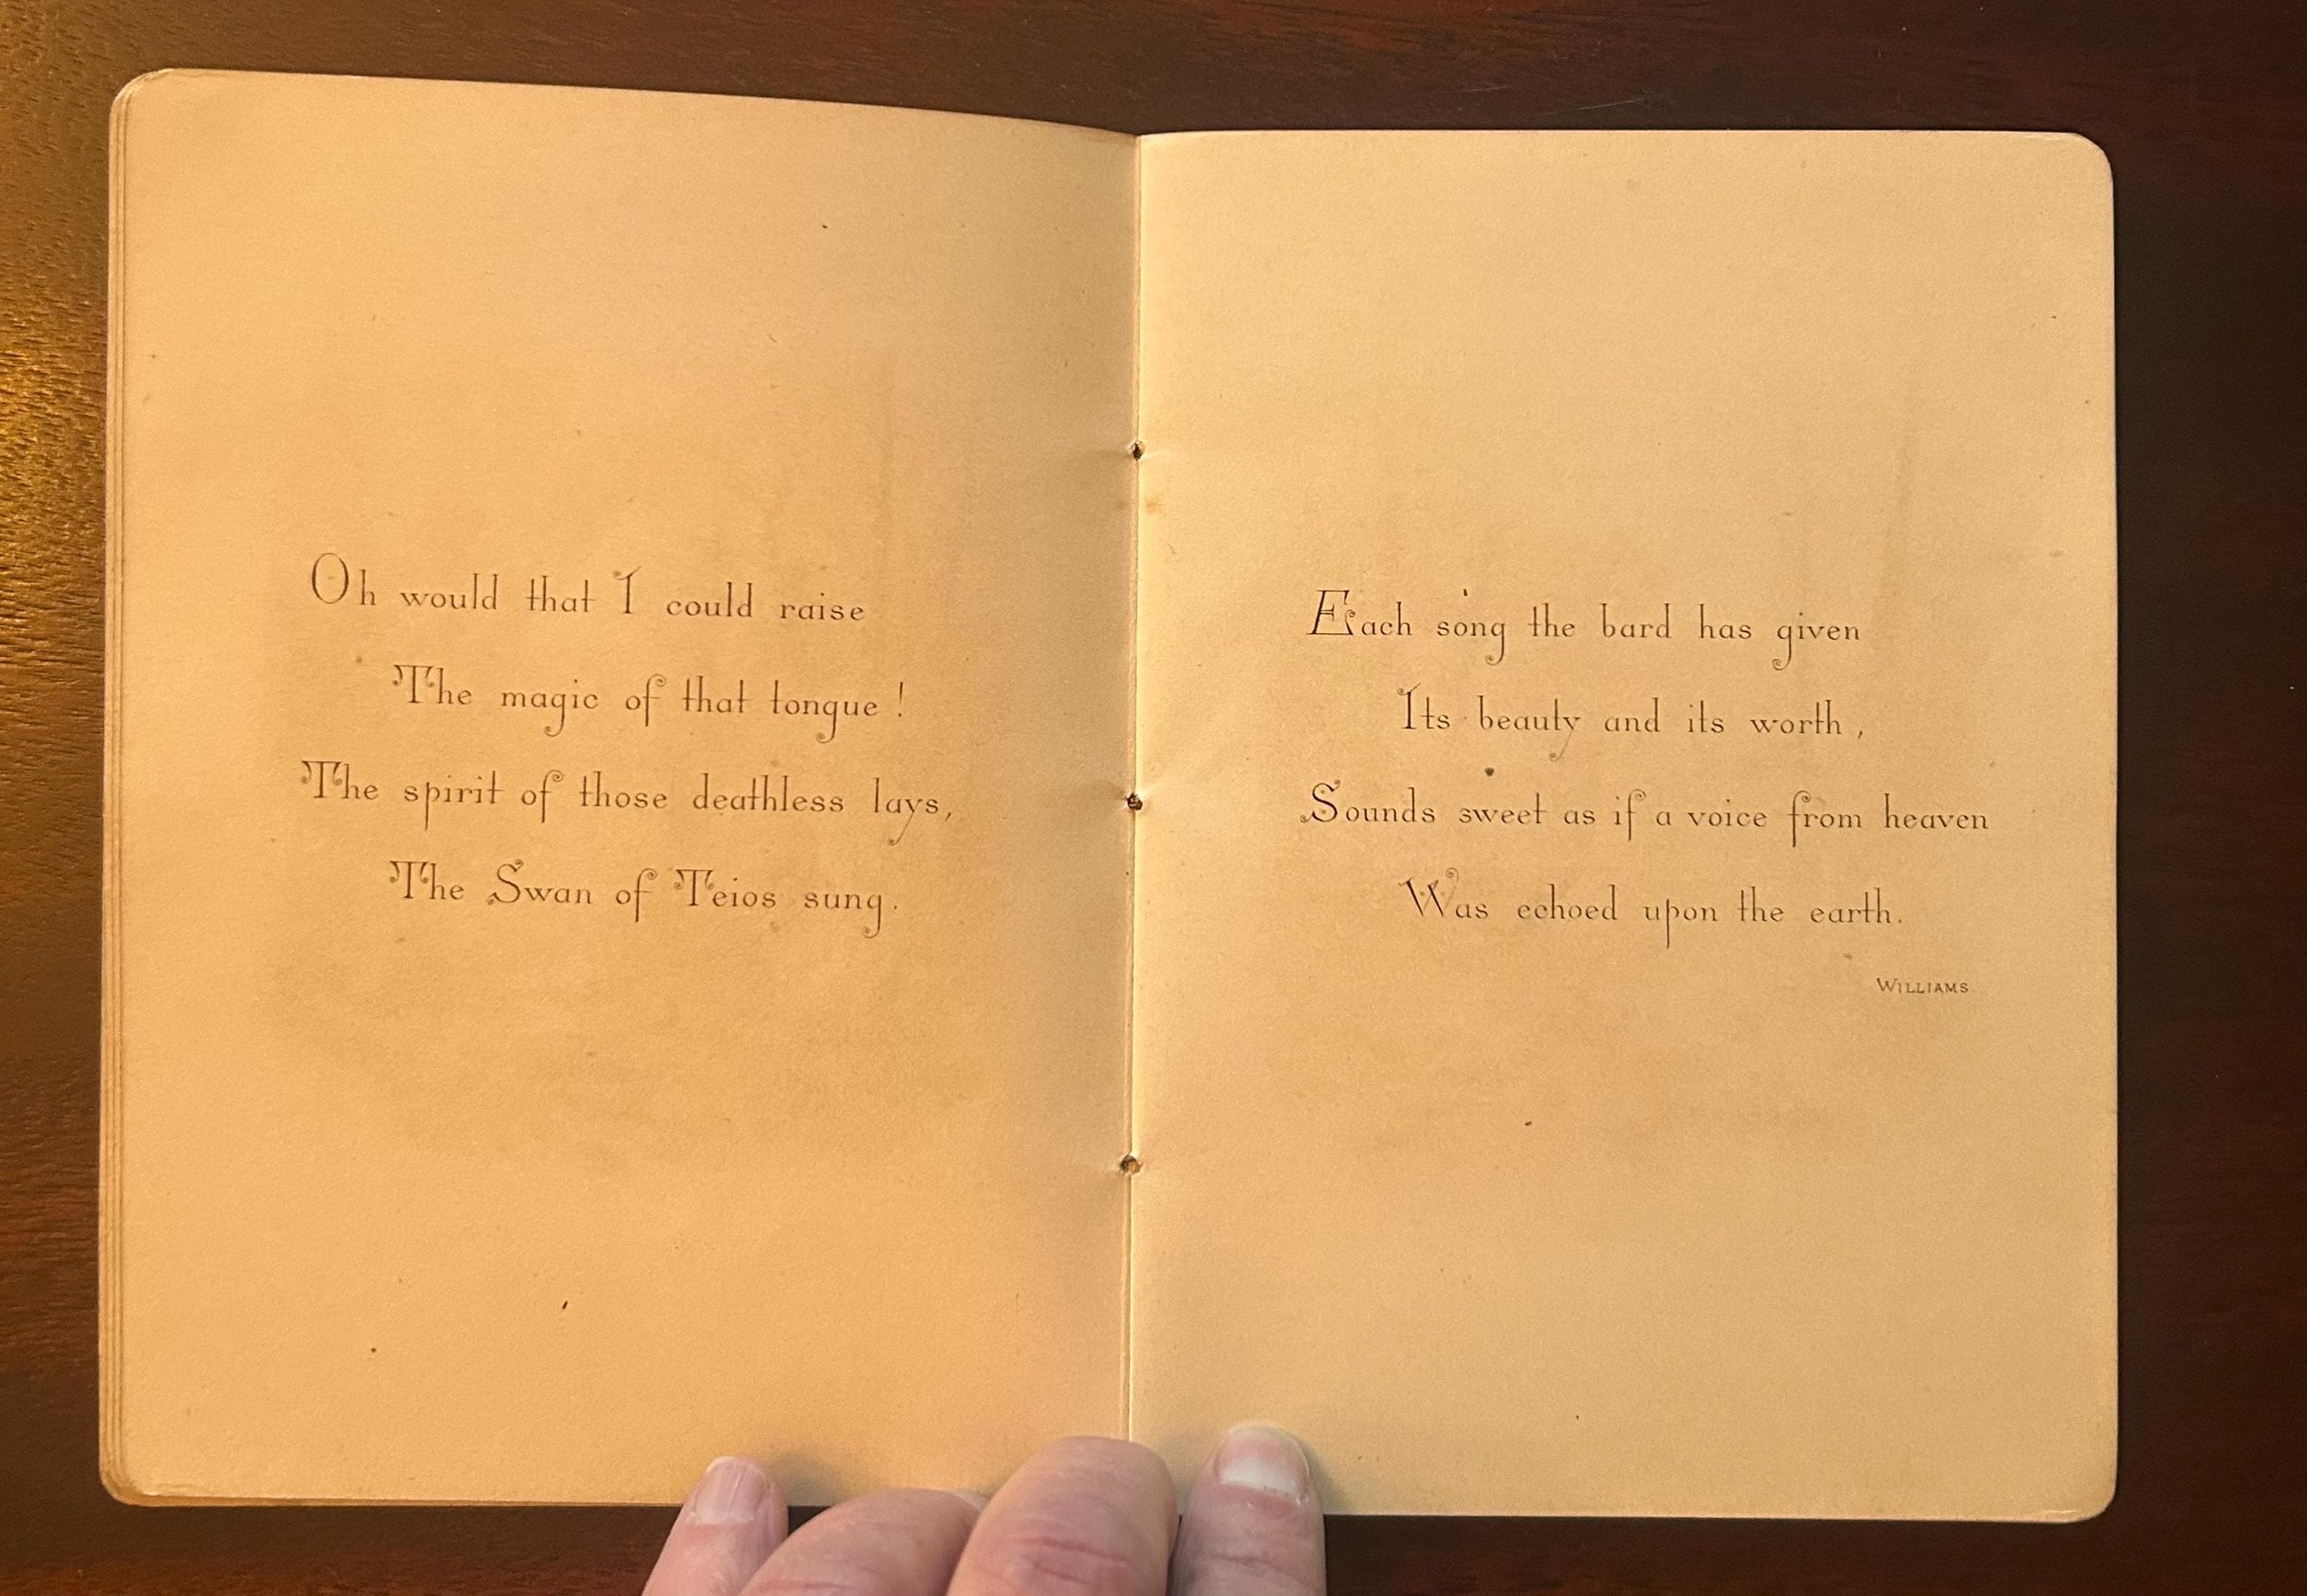 Oh would that I could raise
The magic of that tongue!
The spirit of those deathless lays,
The Swan of Teios sung.
Each song the bard has given
Its beauty and its worth,
Sounds sweet as if a voice from heaven
Was echoed upon the earth.
WILLIAMS